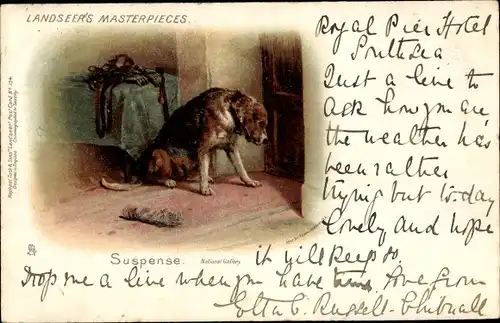 LANDSEER'S MASTERPIECES.
Royal Pier Hotel
Southsea
Just a line to
ask how you are
the weather has
been rather
trying but to-day
lovely and hope
it will keep so.
Suspense.
National Gallery.
Drop me a line when you have time, Love from
Etta C. Russell-
Raphael Tuck & Sons' "Landseer" Post Card